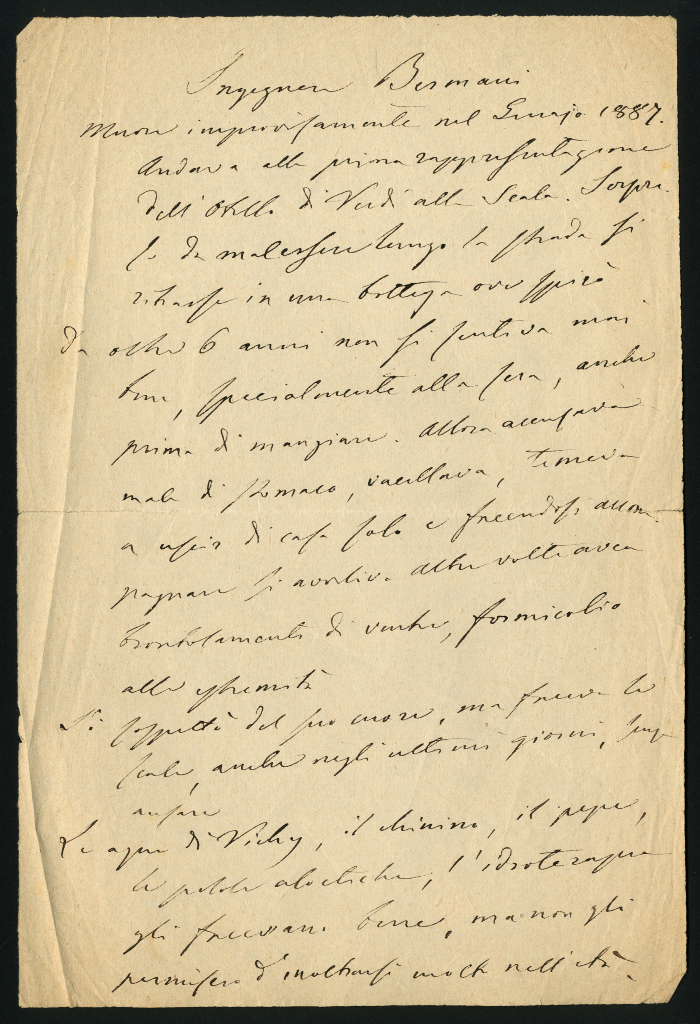 Ingegnere Bermani
Muore improvisamente nel Genajo 1887.
Andava alla prima rappresentazione
dell'Otello di Verdi alla Scala. Sorpre-
so da malessere lungo la strada si
ritrasse in una bottega ove spirò
Da oltre 6 anni non si sentiva mai
bene, specialmente alla sera, anche
prima di mangiare. Allora accusava
male di stomaco, vacillava, temeva
a uscir di casa solo e facendosi accom-
pagnare si avviliva altre volte avea
brontolamenti di ventre, formicolio
alle estremità
Si sospettò del suo cuore, ma faceva le
scale, anche negli ultimi giorni, senza
ansare
Le aque di Vichy, il chinino, il pepe,
le pillole aloetiche, l'idroterapia
gli facevano bene, ma non gli
permisero d'inoltrarsi molto nell'età.